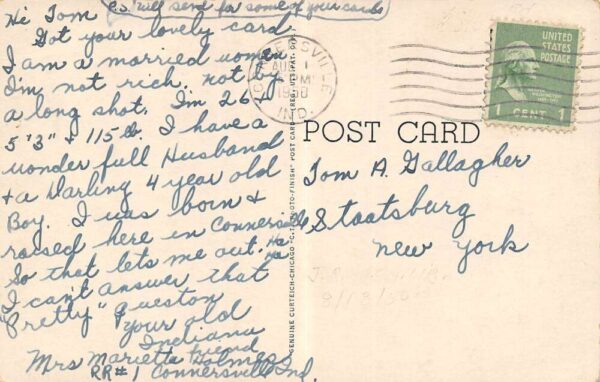 P.S. Will send for some of your cards
Hi Tom
Got your lovely card.
I am a married women
I'm not rich. not by
a long shot. I'm 26
5'3" + 115 lb. I have a
wonder full Husband
+ a Darling 4 year old
Boy. I was born +
raised here in Connersville
So that lets me out. Ha Ha
I can't answer that
"Pretty" queston
your old
Indiana
friend
Mrs Marietta Holmes
RR#1 Connersville Ind.
CONNERSVILLE
AUG 1
PM
1950
IND.
UNITED
STATES
POSTAGE
1 CENT 1
POST CARD
Tom A. Gallagher
Staatsburg
new york
8/18/50
GENUINE CURTEICH-CHICAGO "C.T. PHOTO-FINISH" POST CARD